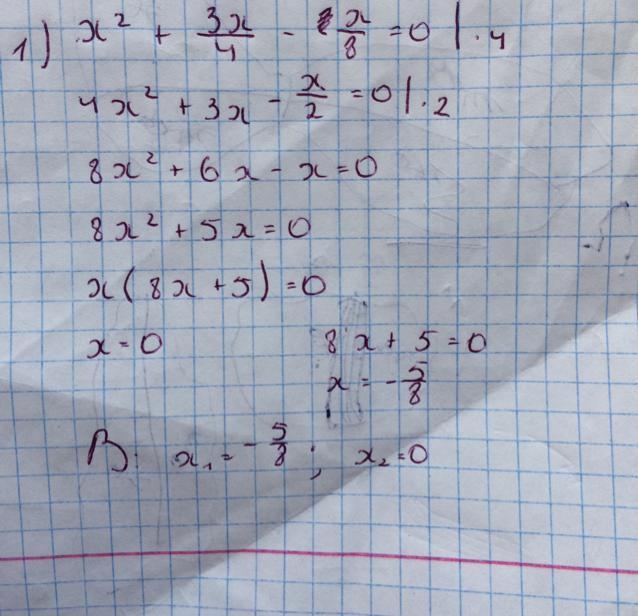 1) x² + 3x/4 - x/8 = 0 | · 4
4x² + 3x - x/2 = 0 | · 2
8x² + 6x - x = 0
8x² + 5x = 0
x(8x + 5) = 0
x = 0 8x + 5 = 0
x = -5/8
В: x₁ = -5/8 ; x₂ = 0